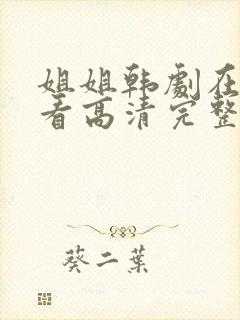 姐姐韩劇在
看高清完整
葵二葉